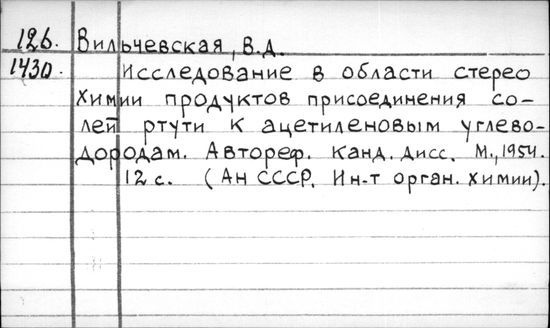 126. Вильчевская, В.Д.
1430. Исследование в области стерео
химии продуктов присоединения со-
лей ртути к ацетиленовым углево-
дородам. Автореф. канд. дисс. М., 1954.
12 с. (Ан СССР. Ин-т орган. химии).